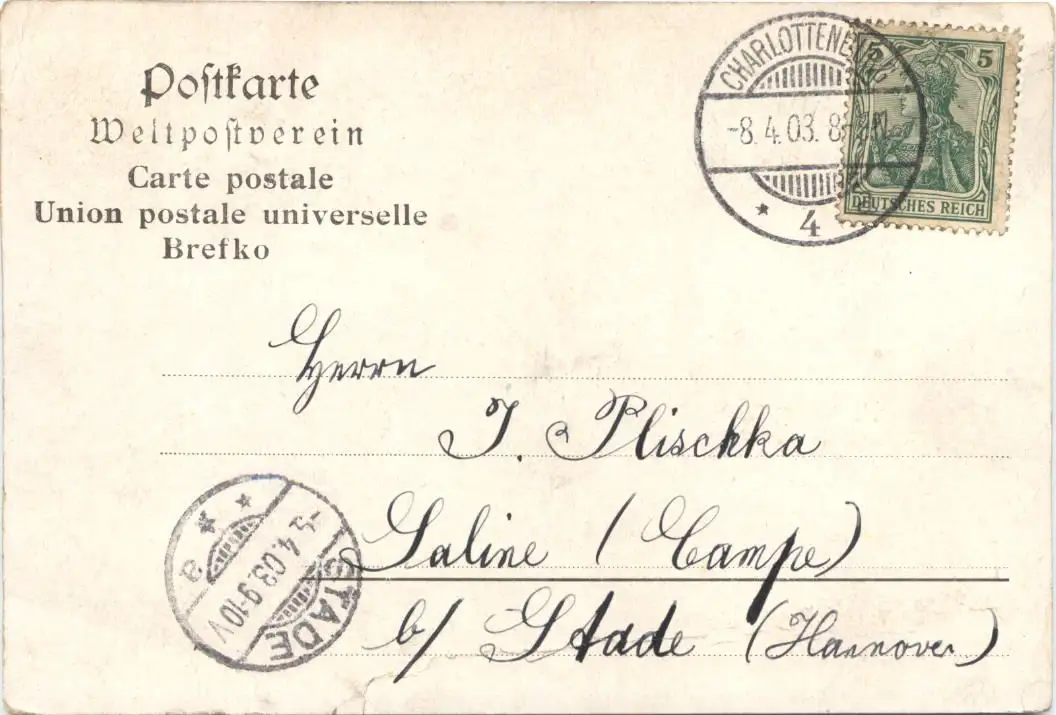 Postkarte
Weltpostverein
Carte postale
Union postale universelle
Brefko
CHARLOTTENBURG
-8.4.03. 8-
* 4
5
DEUTSCHES REICH
Herrn
J. Plischka
Saline (Campe)
b/ Stade (Hannover)
STADE
4.03.9-10V
* * a